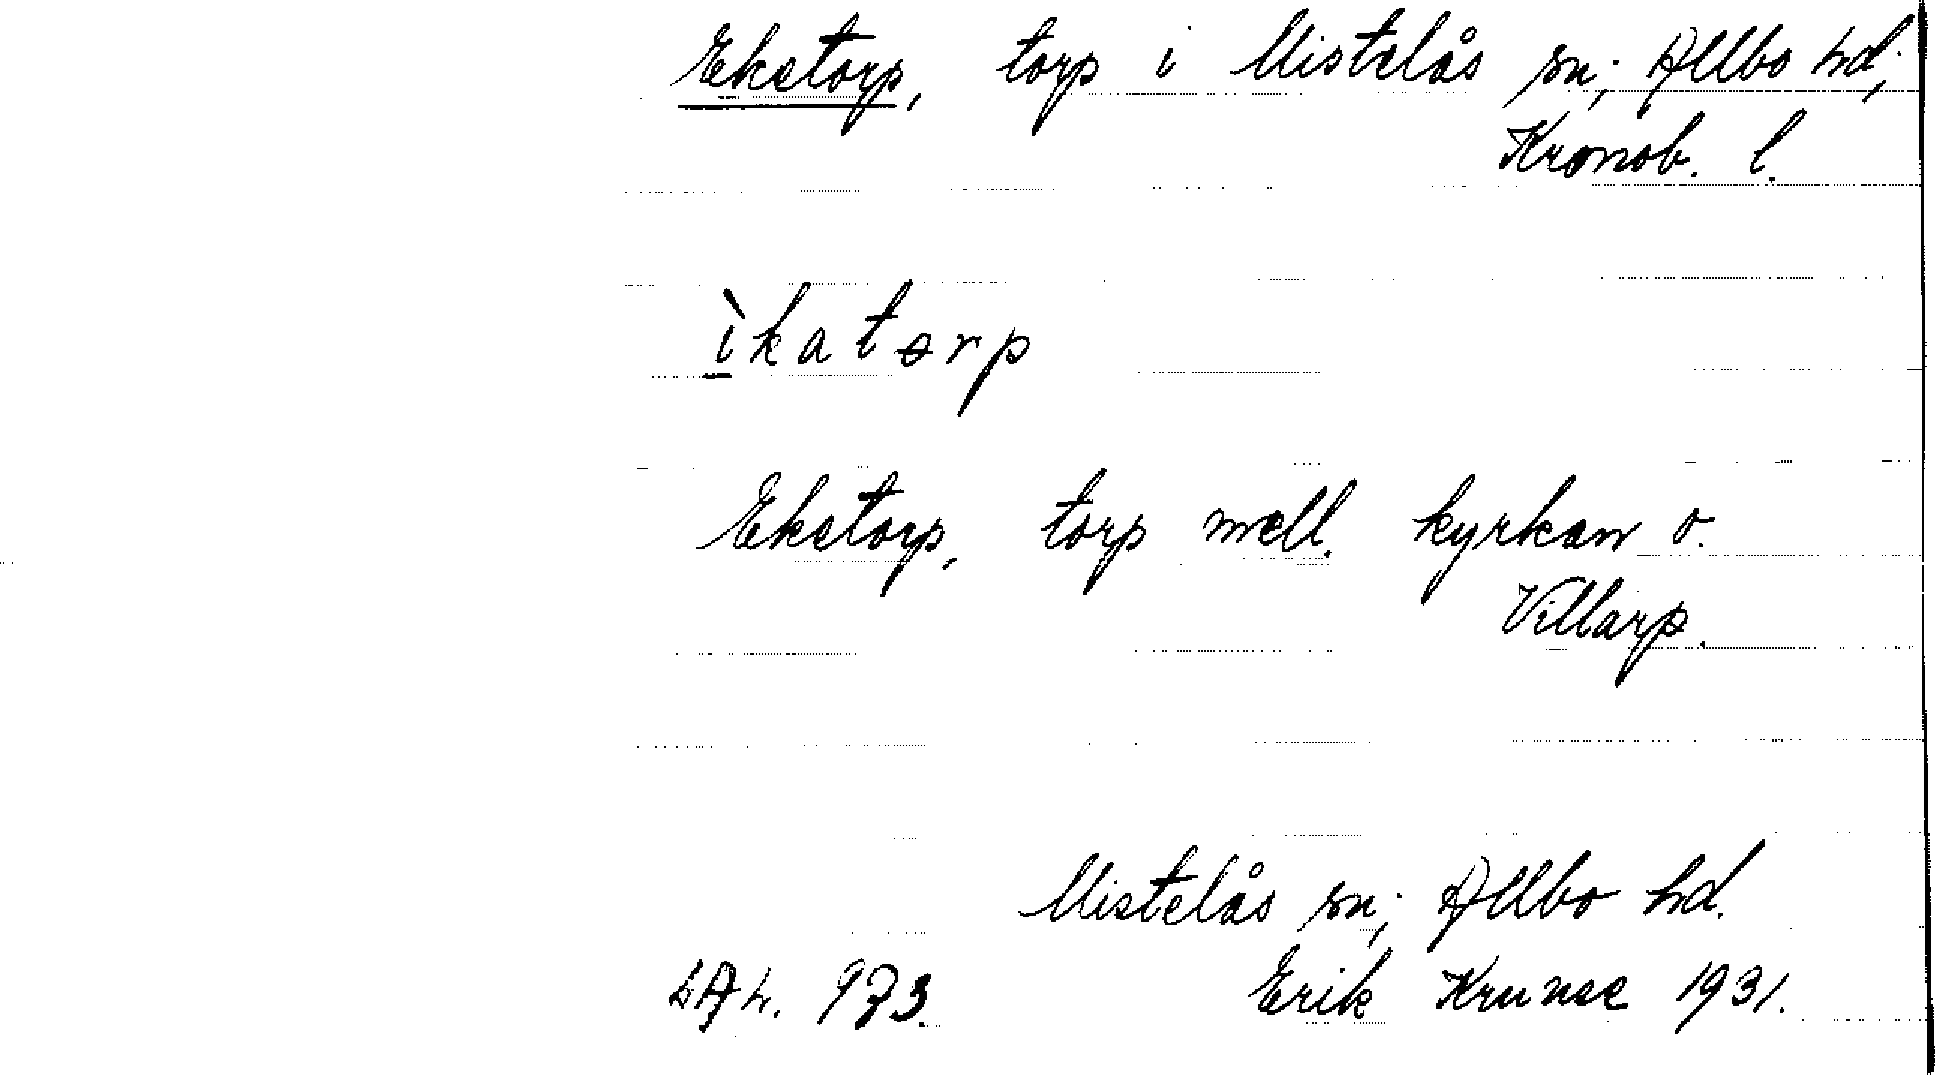 Eketorp, torp i Mistelås sn; Allbo hd;
Kronob. l.
ìkatorp
Eketorp, torp mell. kyrkan o.
Villarp.
Mistelås sn; Allbo hd.
LAL. 973. Erik Krunee 1931.